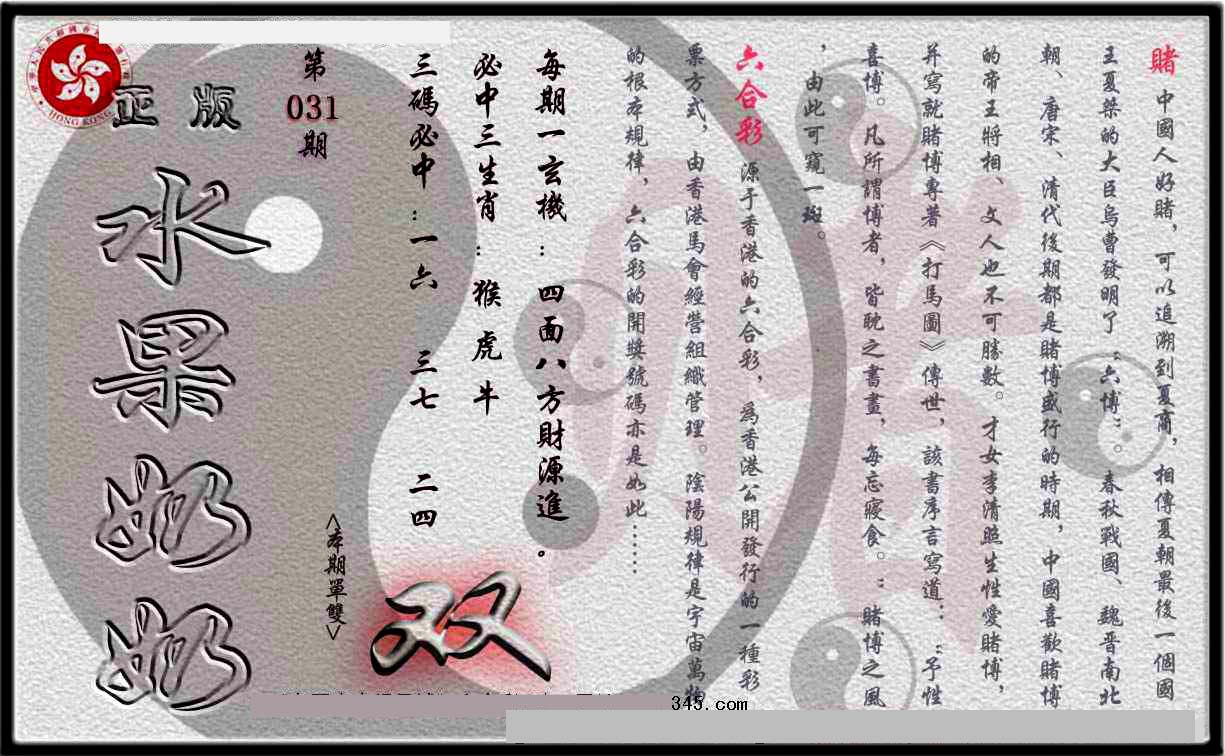 賭 中國人好賭，可以追溯到夏商，相傳夏朝最後一個國
王夏桀的大臣烏曹發明了“六博”。春秋戰國、魏晋南北
朝、唐宋、清代後期都是賭博盛行的時期，中國喜歡賭博
的帝王將相、文人也不可勝數。才女李清照生性愛賭博，
并寫就賭博專著《打馬圖》傳世，該書序言寫道：“予性
喜博。凡所謂博者，皆耽之書畫，每忘寢食。“賭博之風
，由此可窺一斑。
六合彩 源于香港的六合彩，為香港公開發行的一種彩
票方式，由香港馬會經營組織管理。陰陽規律是宇宙萬物
的根本規律，六合彩的開獎號碼亦是如此……
每期一玄機：四面八方財源進。
必中三生肖：猴虎牛
三碼必中：一六 三七 二四
<本期單雙>
双
第
031
期
正版
水果奶奶
HONG KONG
345.com